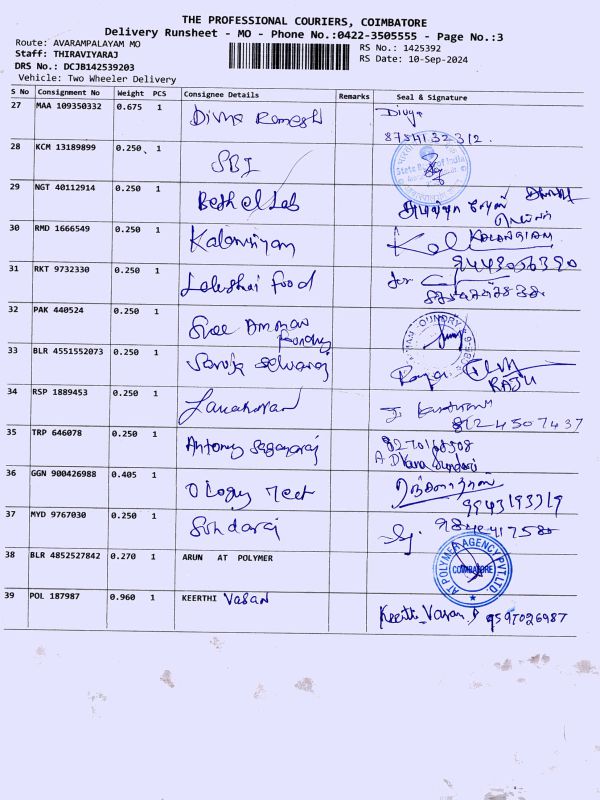 THE PROFESSIONAL COURIERS, COIMBATORE
Delivery Runsheet - MO - Phone No.:0422-3505555 - Page No.:3
Route: AVARAMPALAYAM MO
Staff: THIRAVIYARAJ
DRS No.: DCJB142539203
Vehicle: Two Wheeler Delivery
RS No.: 1425392
RS Date: 10-Sep-2024
S No Consignment No Weight PCS Consignee Details Remarks Seal & Signature
27 MAA 109350332 0.675 1 Divya Ramesh Divya
8754132312.
28 KCM 13189899 0.250 1 SBI State Bank of India
29 NGT 40112914 0.250 1 Bethel Lab
30 RMD 1666549 0.250 1 Kalanviyam Kal KALANGIAM
9443056390
31 RKT 9732330 0.250 1 Laleshai Food for
32 PAK 440524 0.250 1 Sree Amman Foundry
33 BLR 4551552073 0.250 1 Selvaraj
RAJU
34 RSP 1889453 0.250 1
8124507437
35 TRP 646078 0.250 1 Antony Sagayaraj
36 GGN 900426988 0.405 1 Meet
9943193319
37 MYD 9767030 0.250 1 Sundaraj
38 BLR 4852527842 0.270 1 ARUN AT POLYMER AT POLYMER AGENCY PVT. LTD. COIMBATORE
39 POL 187987 0.960 1 KEERTHI Vasan Keerthi Vasan P 9597026987